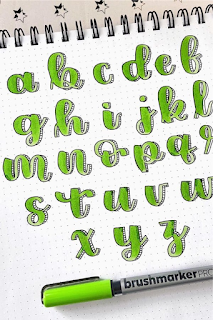 a b c d e f
g h i j k l
m n o p q r
s t u v w
x y z
brushmarker PRO